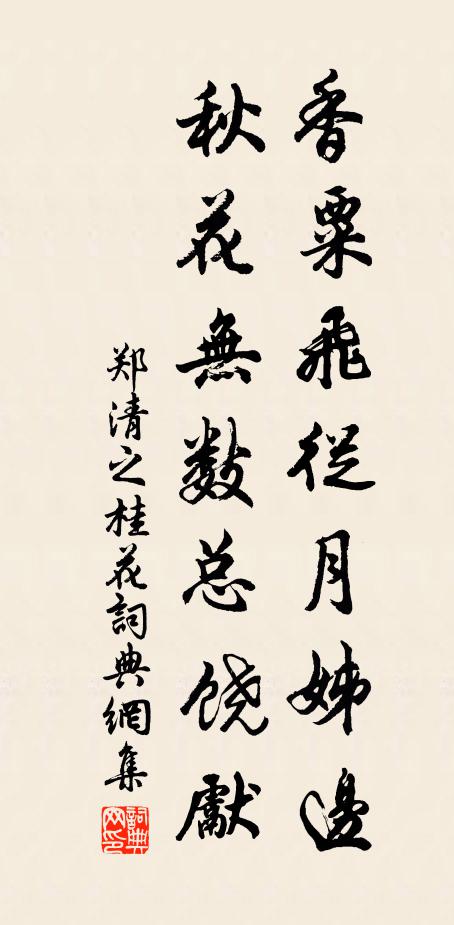 香粟飛從月姊邊
秋花無数总饶獻
郑清之桂花詞典網集
詞典网印